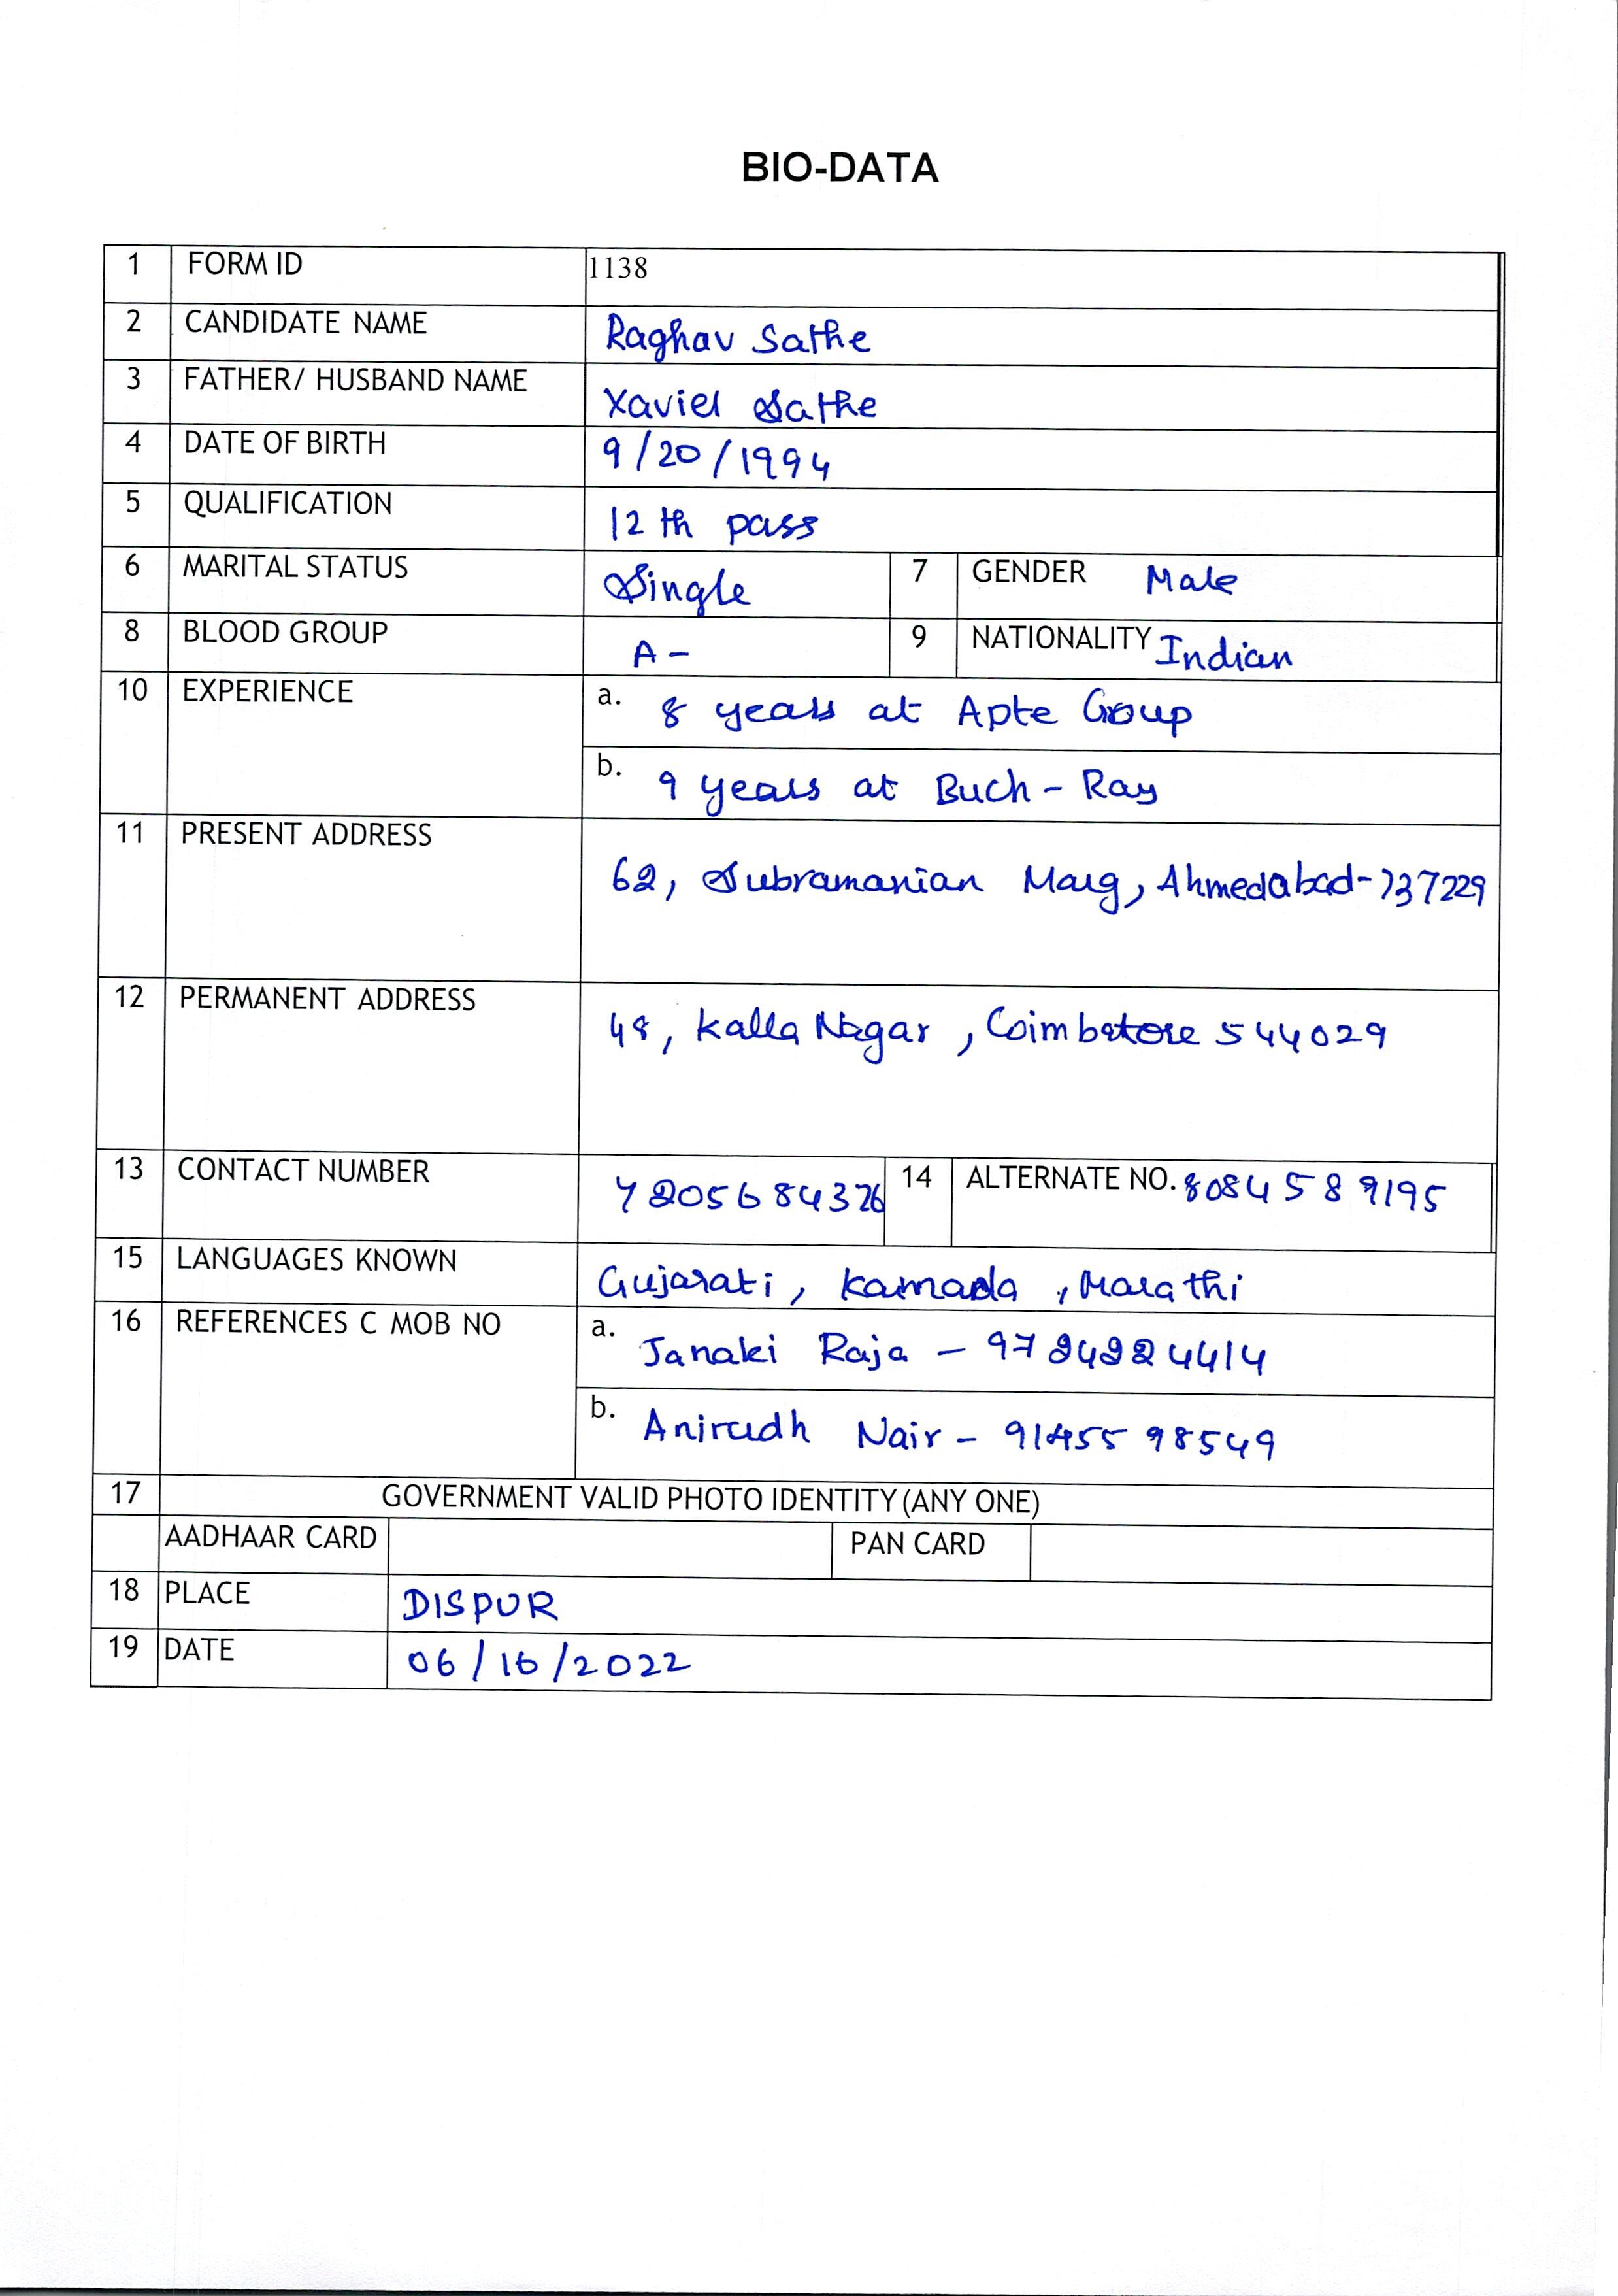 BIO-DATA
1 FORM ID 1138
2 CANDIDATE NAME Raghav Sathe
3 FATHER/ HUSBAND NAME Xavier Sathe
4 DATE OF BIRTH 9/20/1994
5 QUALIFICATION 12 th pass
6 MARITAL STATUS Single 7 GENDER Male
8 BLOOD GROUP A- 9 NATIONALITY Indian
10 EXPERIENCE a. 8 years at Apte Group
b. 9 years at Buch-Ray
11 PRESENT ADDRESS 62, Subramanian Marg, Ahmedabad-737229
12 PERMANENT ADDRESS 48, Kalla Nagar, Coimbatore 544029
13 CONTACT NUMBER 7205684376 14 ALTERNATE NO. 8084589195
15 LANGUAGES KNOWN Gujarati, Kannada, Marathi
16 REFERENCES C MOB NO a. Janaki Raja - 9724224414
b. Anirudh Nair - 9145598549
17 GOVERNMENT VALID PHOTO IDENTITY (ANY ONE)
AADHAAR CARD PAN CARD
18 PLACE DISPUR
19 DATE 06/16/2022